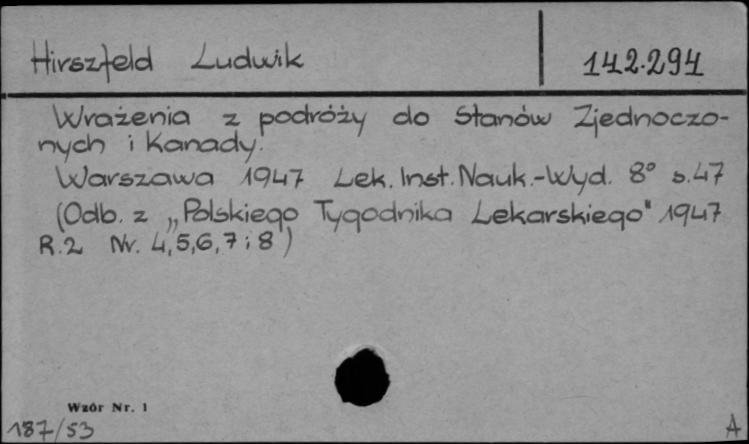 Hirszfeld Ludwik 142.294
Wrażenia z podróży do Stanów Zjednoczo-
nych i Kanady.
Warszawa 1947 Lek. Inst. Nauk.-Wyd. 8° s. 47
(Odb. z „Polskiego Tygodnika Lekarskiego" 1947
R.2 Nr. 4,5,6,7 i 8)
Wzór Nr. 1
187/53 A